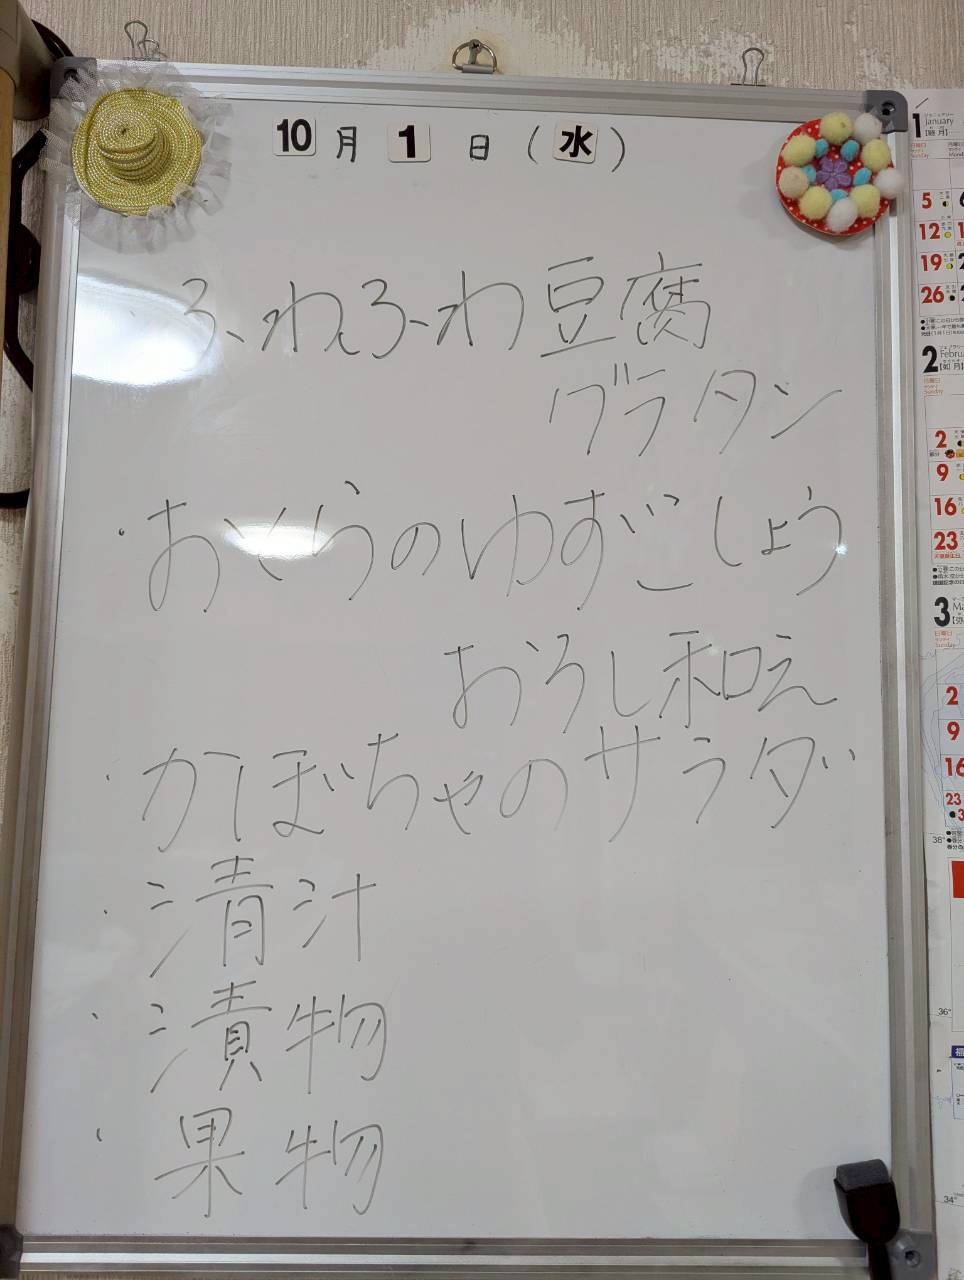 10月1日(水)
ふわふわ豆腐
グラタン
・おくらのゆずごしょう
おろし和え
・かぼちゃのサラダ
・清汁
・漬物
・果物
1
January
5
12
19
26
2
2
9
16
23
3
2
9
16
23
38°
36°
34°